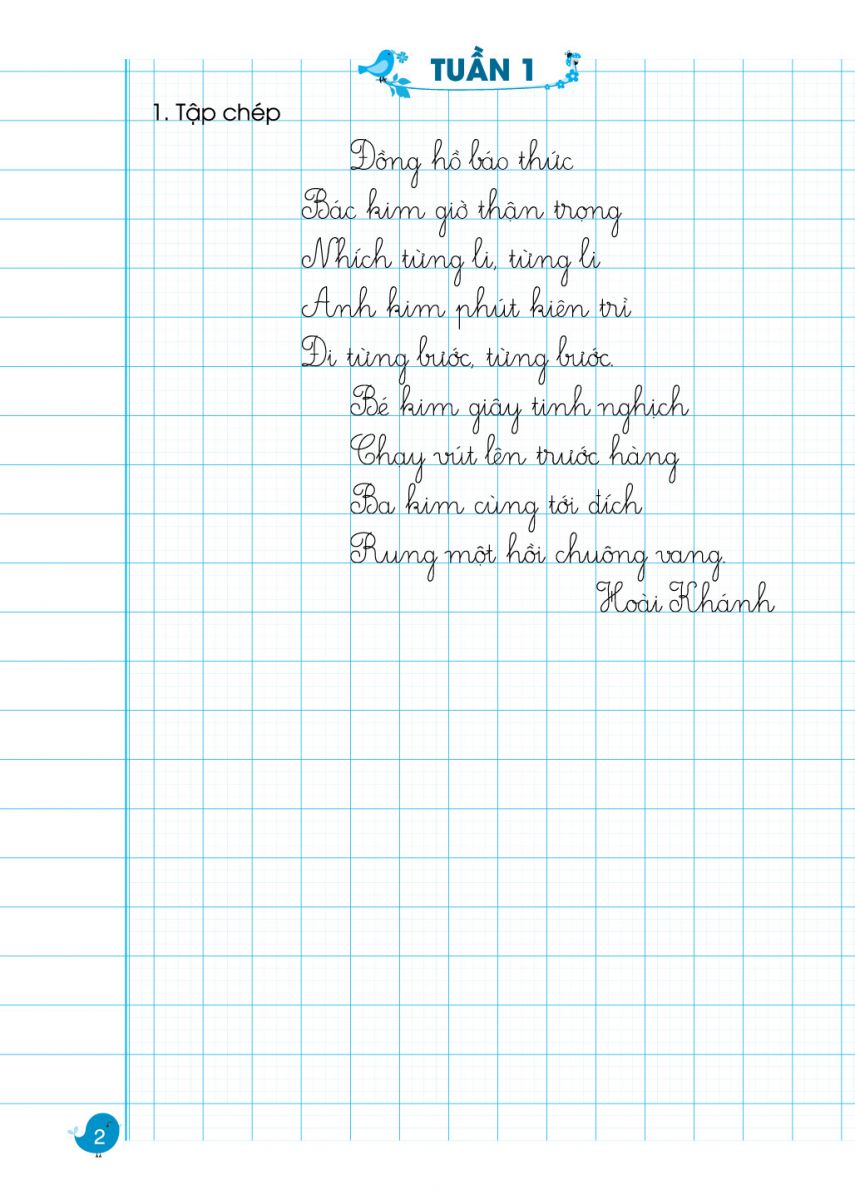 TUẦN 1
1. Tập chép
Đồng hồ báo thức
Bác kim giờ thận trọng
Nhích từng li, từng li
Anh kim phút kiên trì
Đi từng bước, từng bước.
Bé kim giây tinh nghịch
Chạy vút lên trước hàng
Ba kim cùng tới đích
Rung một hồi chuông vang.
Hoài Khánh
2